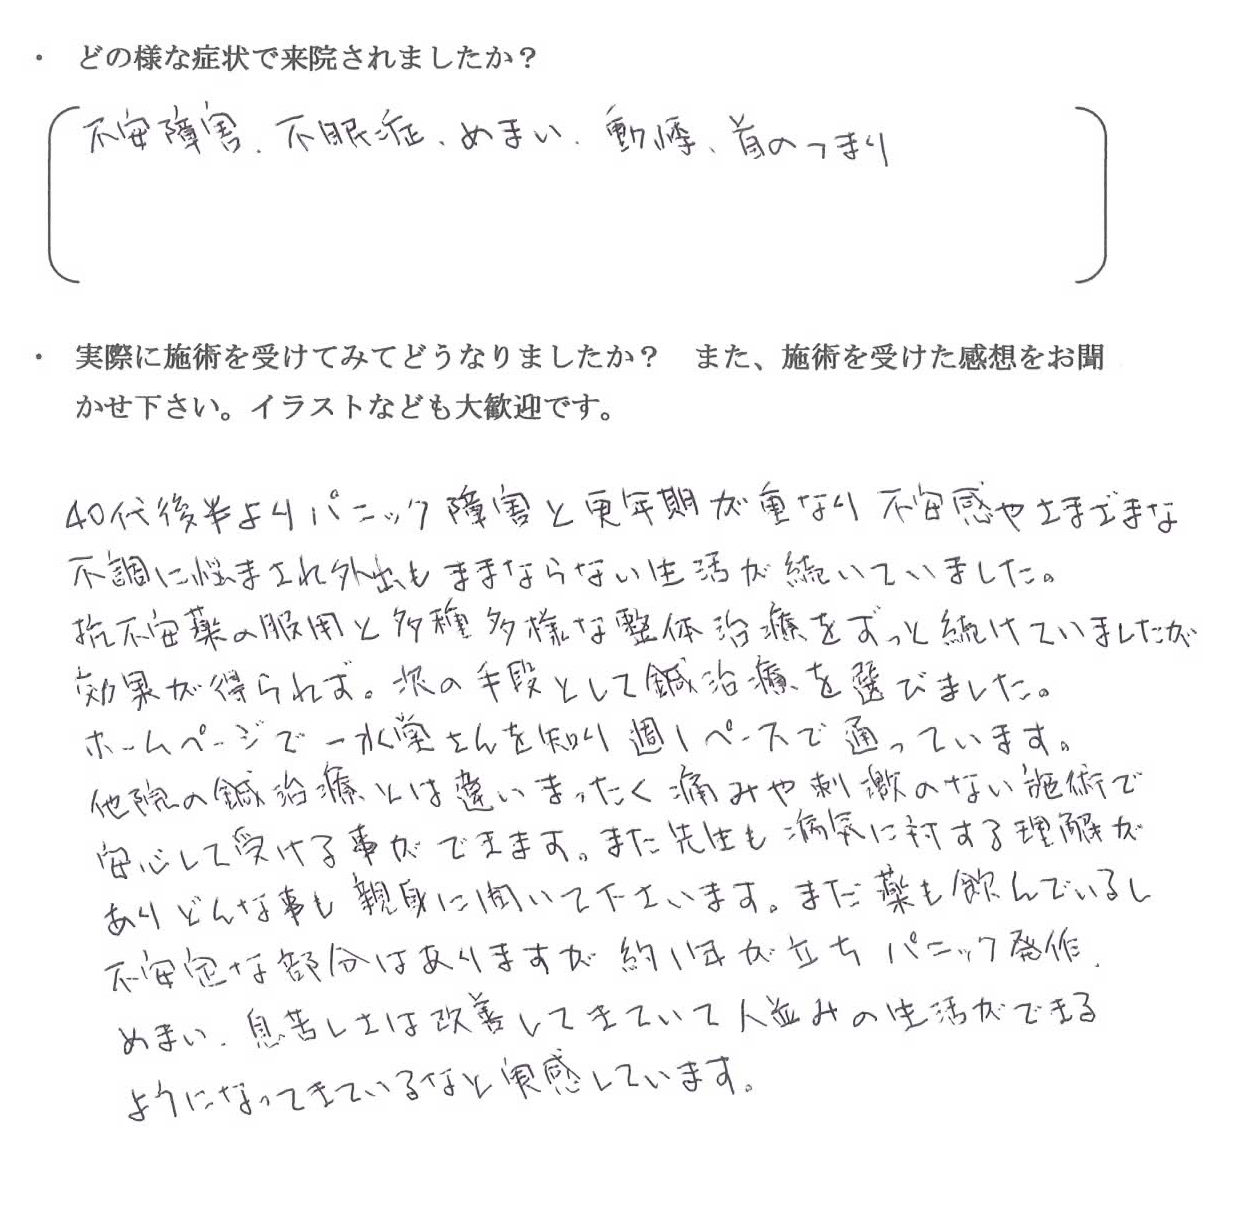 ・ どの様な症状で来院されましたか?
不安障害、不眠症、めまい、動悸、首のつまり
・ 実際に施術を受けてみてどうなりましたか? また、施術を受けた感想をお聞
かせ下さい。イラストなども大歓迎です。
40代後半よりパニック障害と更年期が重なり不安感やさまざまな
不調に悩まされ外出もままならない生活が続いていました。
抗不安薬の服用と多種多様な整体治療をずっと続けていましたが
効果が得られず。次の手段として鍼治療を選びました。
ホームページで一水堂さんを知り週1ペースで通っています。
他院の鍼治療とは違いまったく痛みや刺激のない施術で
安心して受ける事ができます。また先生も病気に対する理解が
ありどんな事も親身に聞いて下さいます。まだ薬も飲んでいるし
不安定な部分はありますが約1年が立ちパニック発作、
めまい、息苦しさは改善してきていて人並みの生活ができる
ようになってきているなと実感しています。